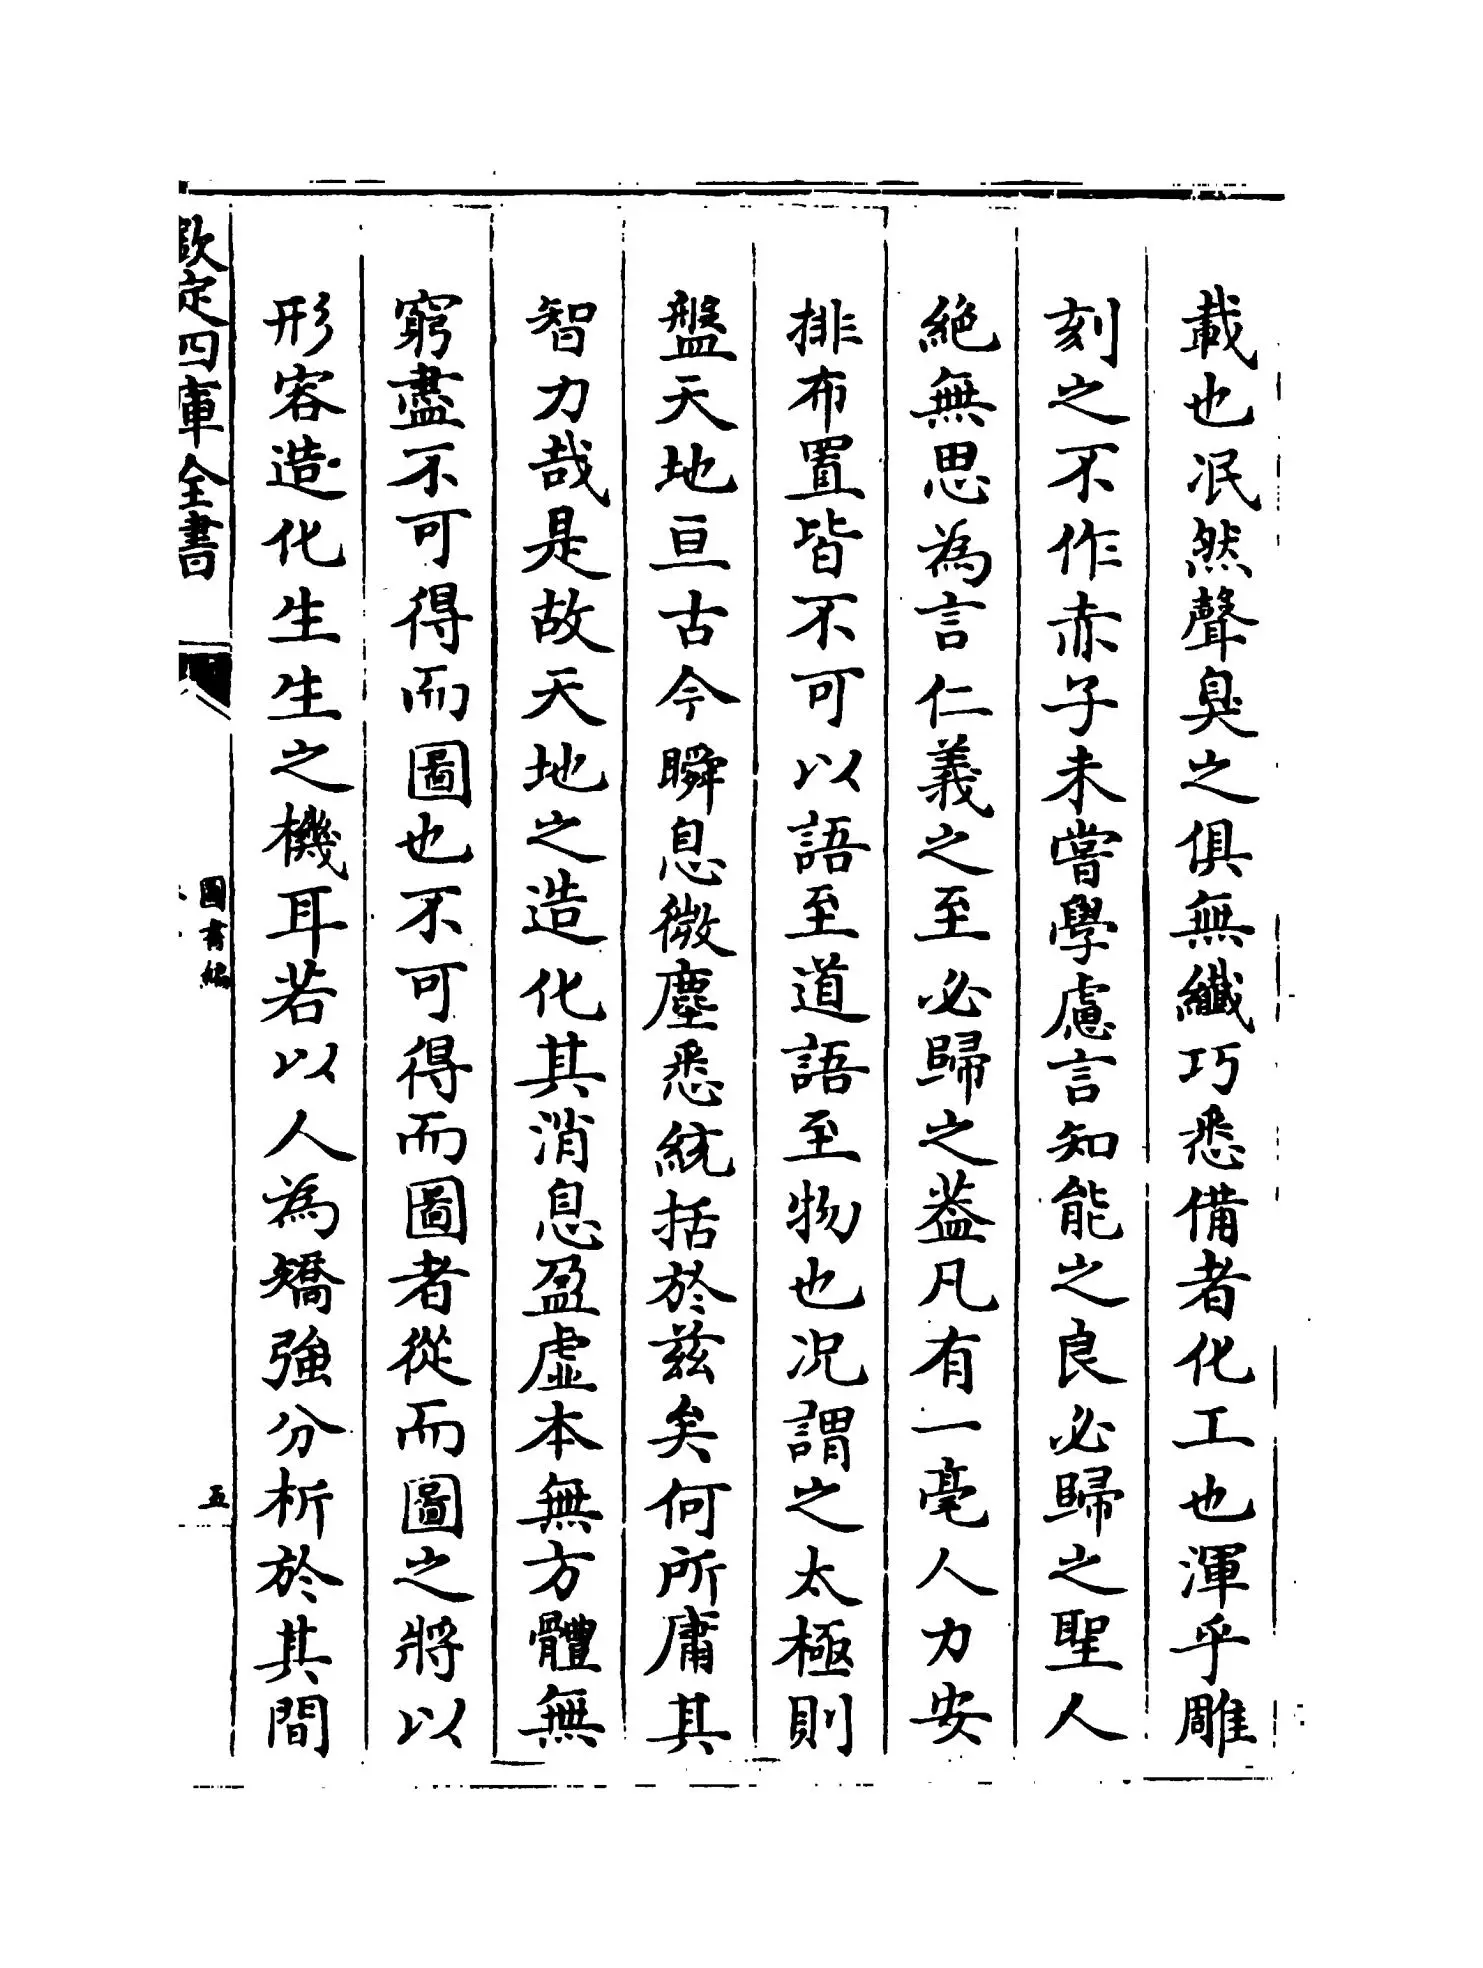 載也泯然聲臭之俱無纖巧悉備者化工也渾乎雕
刻之不作赤子未嘗學慮言知能之良必歸之聖人
絶無思為言仁義之至必歸之葢凡有一毫人力安
排布置皆不可以語至道語至物也况謂之太極則
盤天地亘古今瞬息微塵悉統括於兹矣何所庸其
智力哉是故天地之造化其消息盈虚本無方體無
窮盡不可得而圖也不可得而圖者從而圖之將以
形容造化生生之機耳若以人為矯強分析於其間
欽定四庫全書
圖書編
五